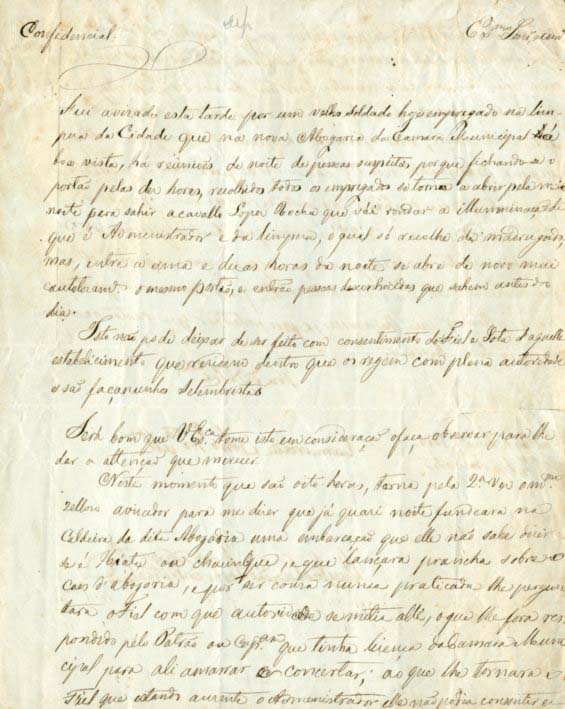 Confidencial.
Fui avizado esta tarde por um velho Soldado hoje empregado na lim-
peza da Cidade que na nova Abegoria da Camara Municipal Sita
boa vista, ha reuniões de noite de pessoas suspeitas, porque fichando-se o
portão pelas des horas, recolhidos todos os empregados se torna a abrir pela meia
noite para sahir a cavallo Lopes Rocha que vai rondar a illuminação de
que é Administrador e da limpeza, o qual só recolhe de madrugada,
mas, entre a uma e duas horas da noite se abre de novo mui
o mesmo portão, e entrão pessoas desconhecidas que sahem antes do
dia.
Isto não pode deixar de ser feito com consentimento do Fiel e d'aquelle
estabelecimento que rezidem dentro que os regem com plena autoridade
e são façanhudos Setembristas
Será bom que VEx.ca tome isto em consideração e faça observar para lhe
dar a attenção que merecer.
Neste momento que são oito horas, torna pela 2.a vez o m.mo
zellozo avizador para me dizer que já quazi noite fundeara na
Caldeira da dita Abegoria uma embarcação que elle não sabe dizer
se é Hiate ou Chaveque, e que lançara prancha sobre o
caes d'abegoria, e por ser couza nunca praticada lhe pergun-
tara o Fiel com que autoridade se metia alli, o que lhe fora res-
pondido pelo Patrão ou Cap.am que tinha licença da Camara Muni-
cipal para ali amarrar e concertar; ao que lhe tornara o
Fiel que estando auzente o Administrador elle não podia consentir